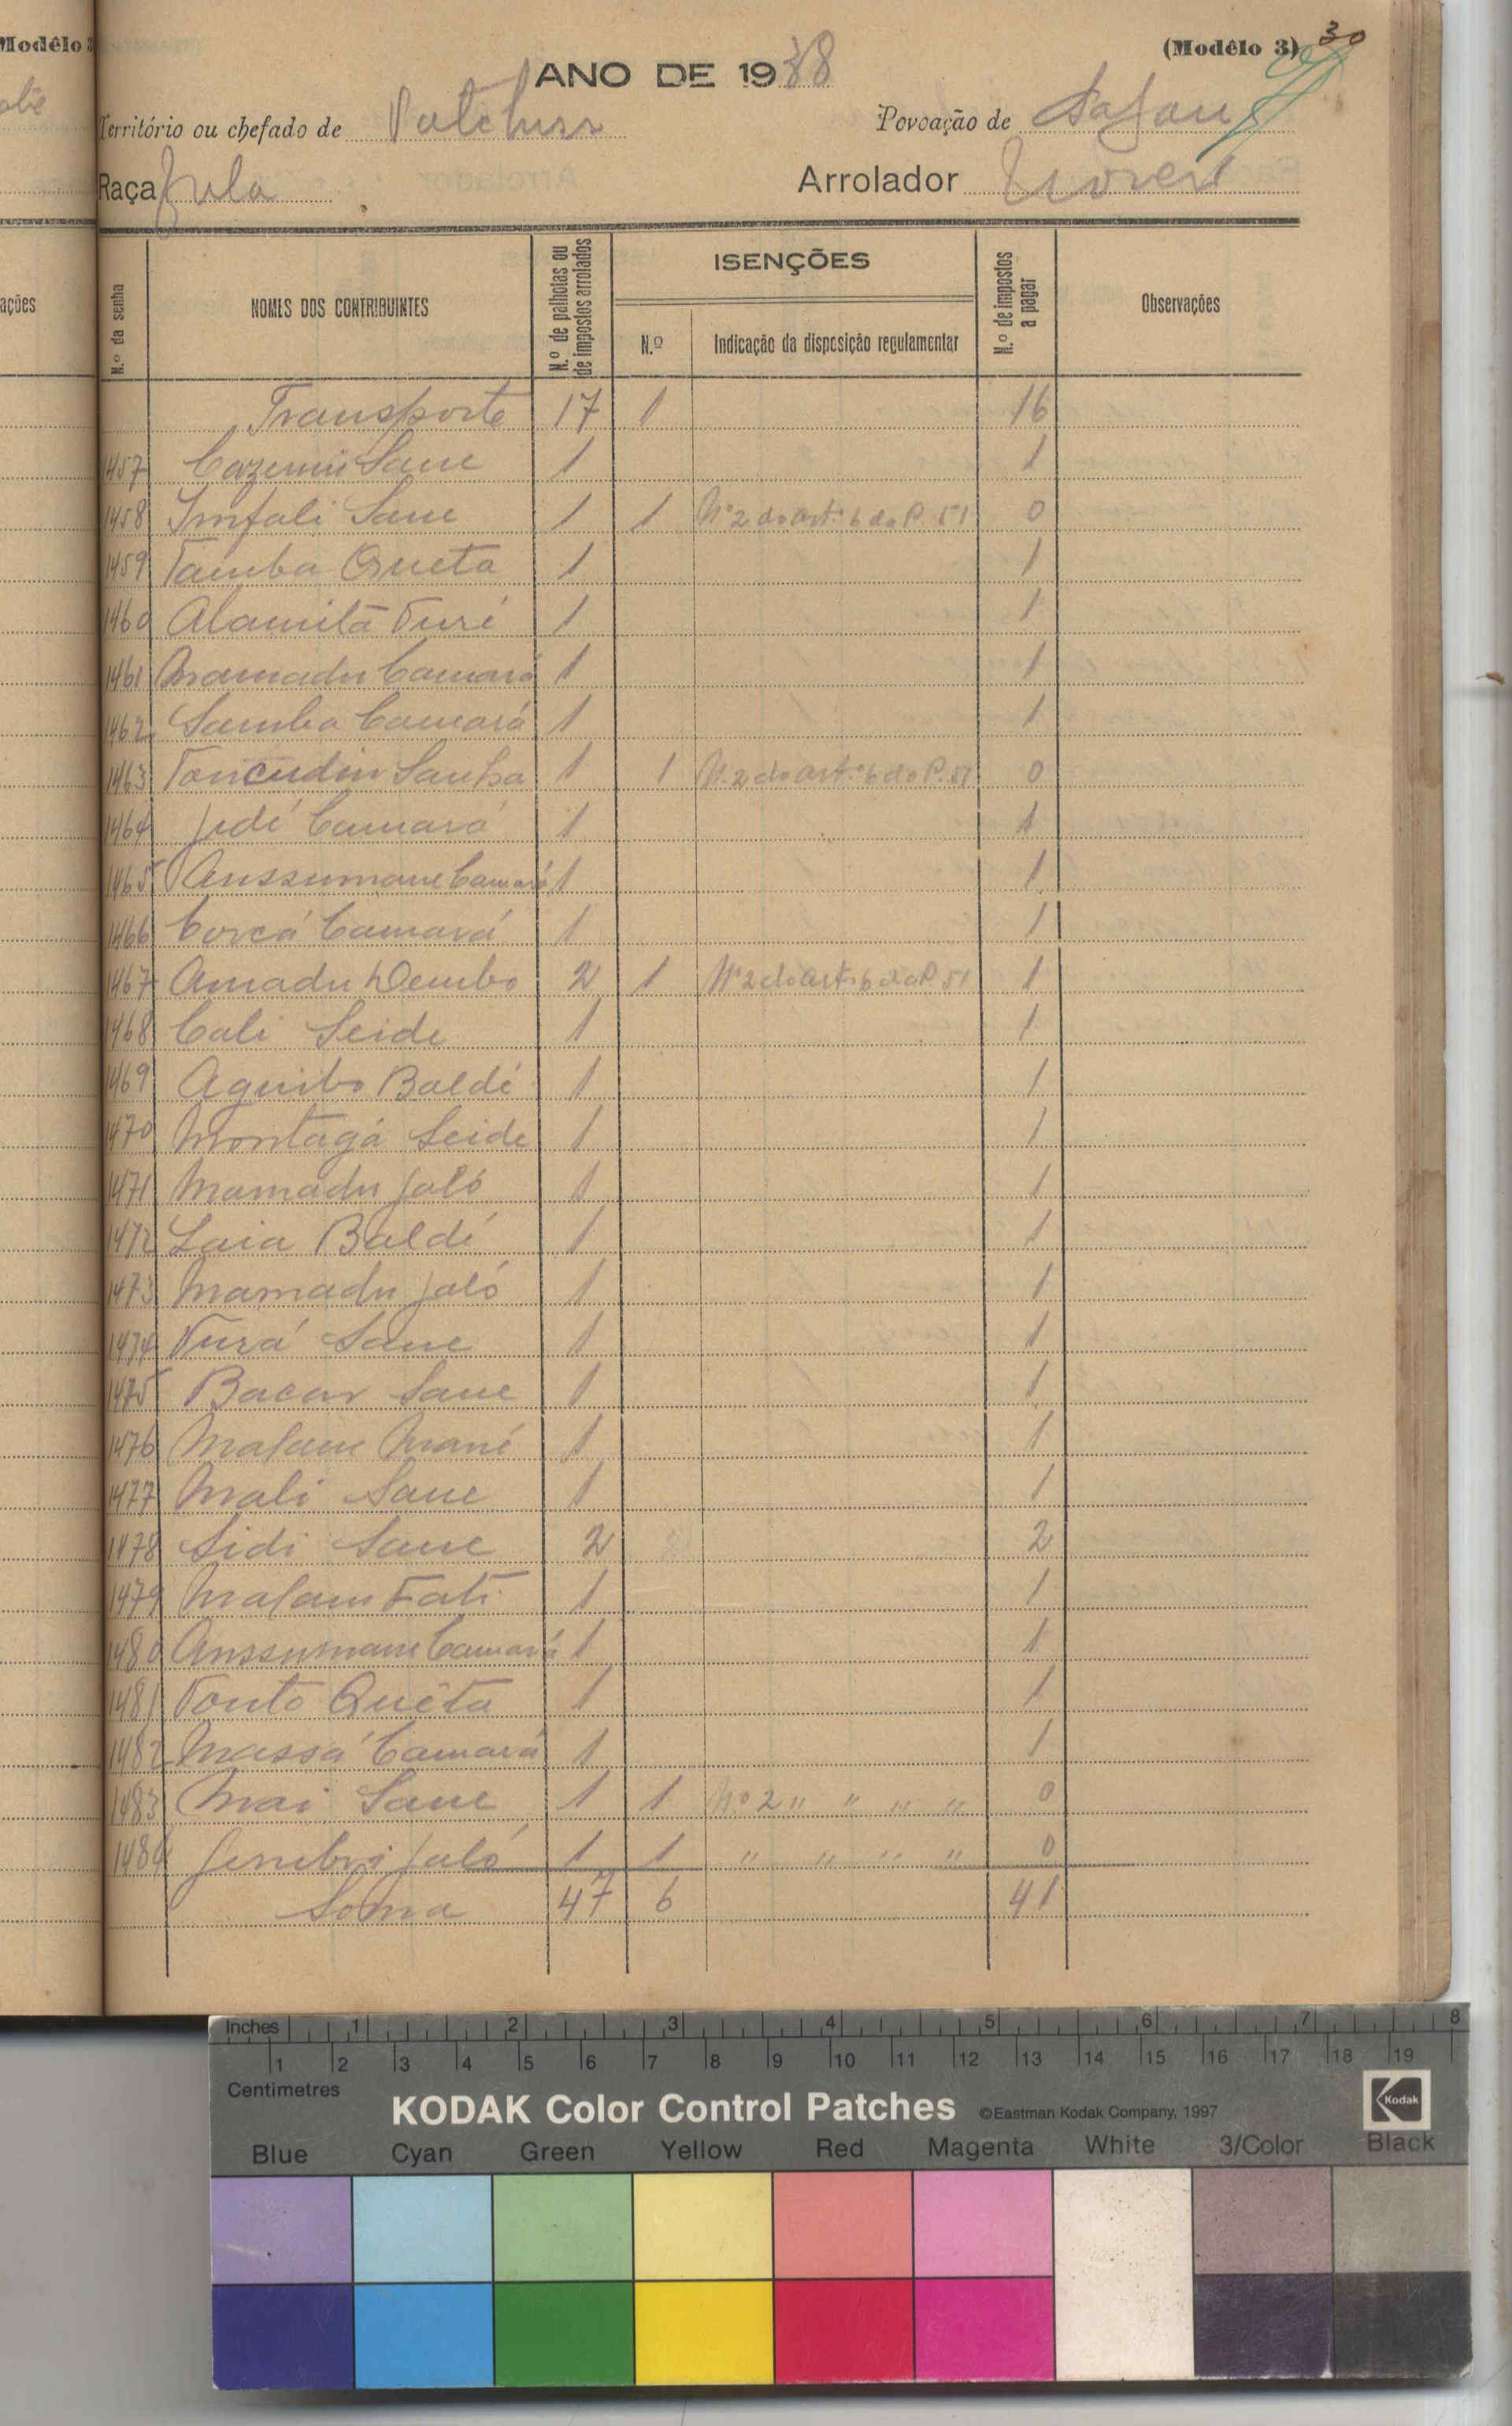 Modêlo 3
ações
(Modêlo 3) 30
ANO DE 1938
Território ou chefado de
Povoação de
Raça Fula
Arrolador
N.º da senha
NOMES DOS CONTRIBUINTES
N.º de palhotas ou de impostos arrolados
ISENÇÕES
N.º
Indicação da disposição regulamentar
N.º de impostos a pagar
Observações
Transporte 17 1 16
1457 Cazemiro Sane 1 1
1458 Infali Sane 1 1 Nº 2 do art.º 6 do P. 51 0
1459 Tamba Queta 1 1
1460 Alamitá Turé 1 1
1461 Mamadu Camará 1 1
1462 Samba Camará 1 1
1463 Sanha 1 1 N.2 do art.º 6 do P. 51 0
1464 Jedé Camará 1 1
1465 Anssumane Camará 1 1
1466 Corcá Camará 1 1
1467 Amadu Dembo 2 1 Nº 2 do art.º 6 do P. 51 1
1468 Cali Seide 1 1
1469 Aguibo Baldé 1 1
1470 Montagá Seide 1 1
1471 Mamadu Jaló 1 1
1472 Laia Baldé 1 1
1473 Mamadu Jaló 1 1
1474 Turá Sane 1 1
1475 Bacar Sane 1 1
1476 Malam Mané 1 1
1477 Mali Sane 1 1
1478 Sidi Sane 2 2
1479 Malam Fati 1 1
1480 Anssumane Camará 1 1
1481 Tonto Quêta 1 1
1482 Massá Camará 1 1
1483 Mai Sane 1 1 Nº 2 " " " " 0
1484 Jaló 1 1 " " " " 0
Soma 47 6 41
Inches 1 2 3 4 5 6 7 8
1 2 3 4 5 6 7 8 9 10 11 12 13 14 15 16 17 18 19
Centimetres
KODAK Color Control Patches ©Eastman Kodak Company, 1997 Kodak
Blue Cyan Green Yellow Red Magenta White 3/Color Black